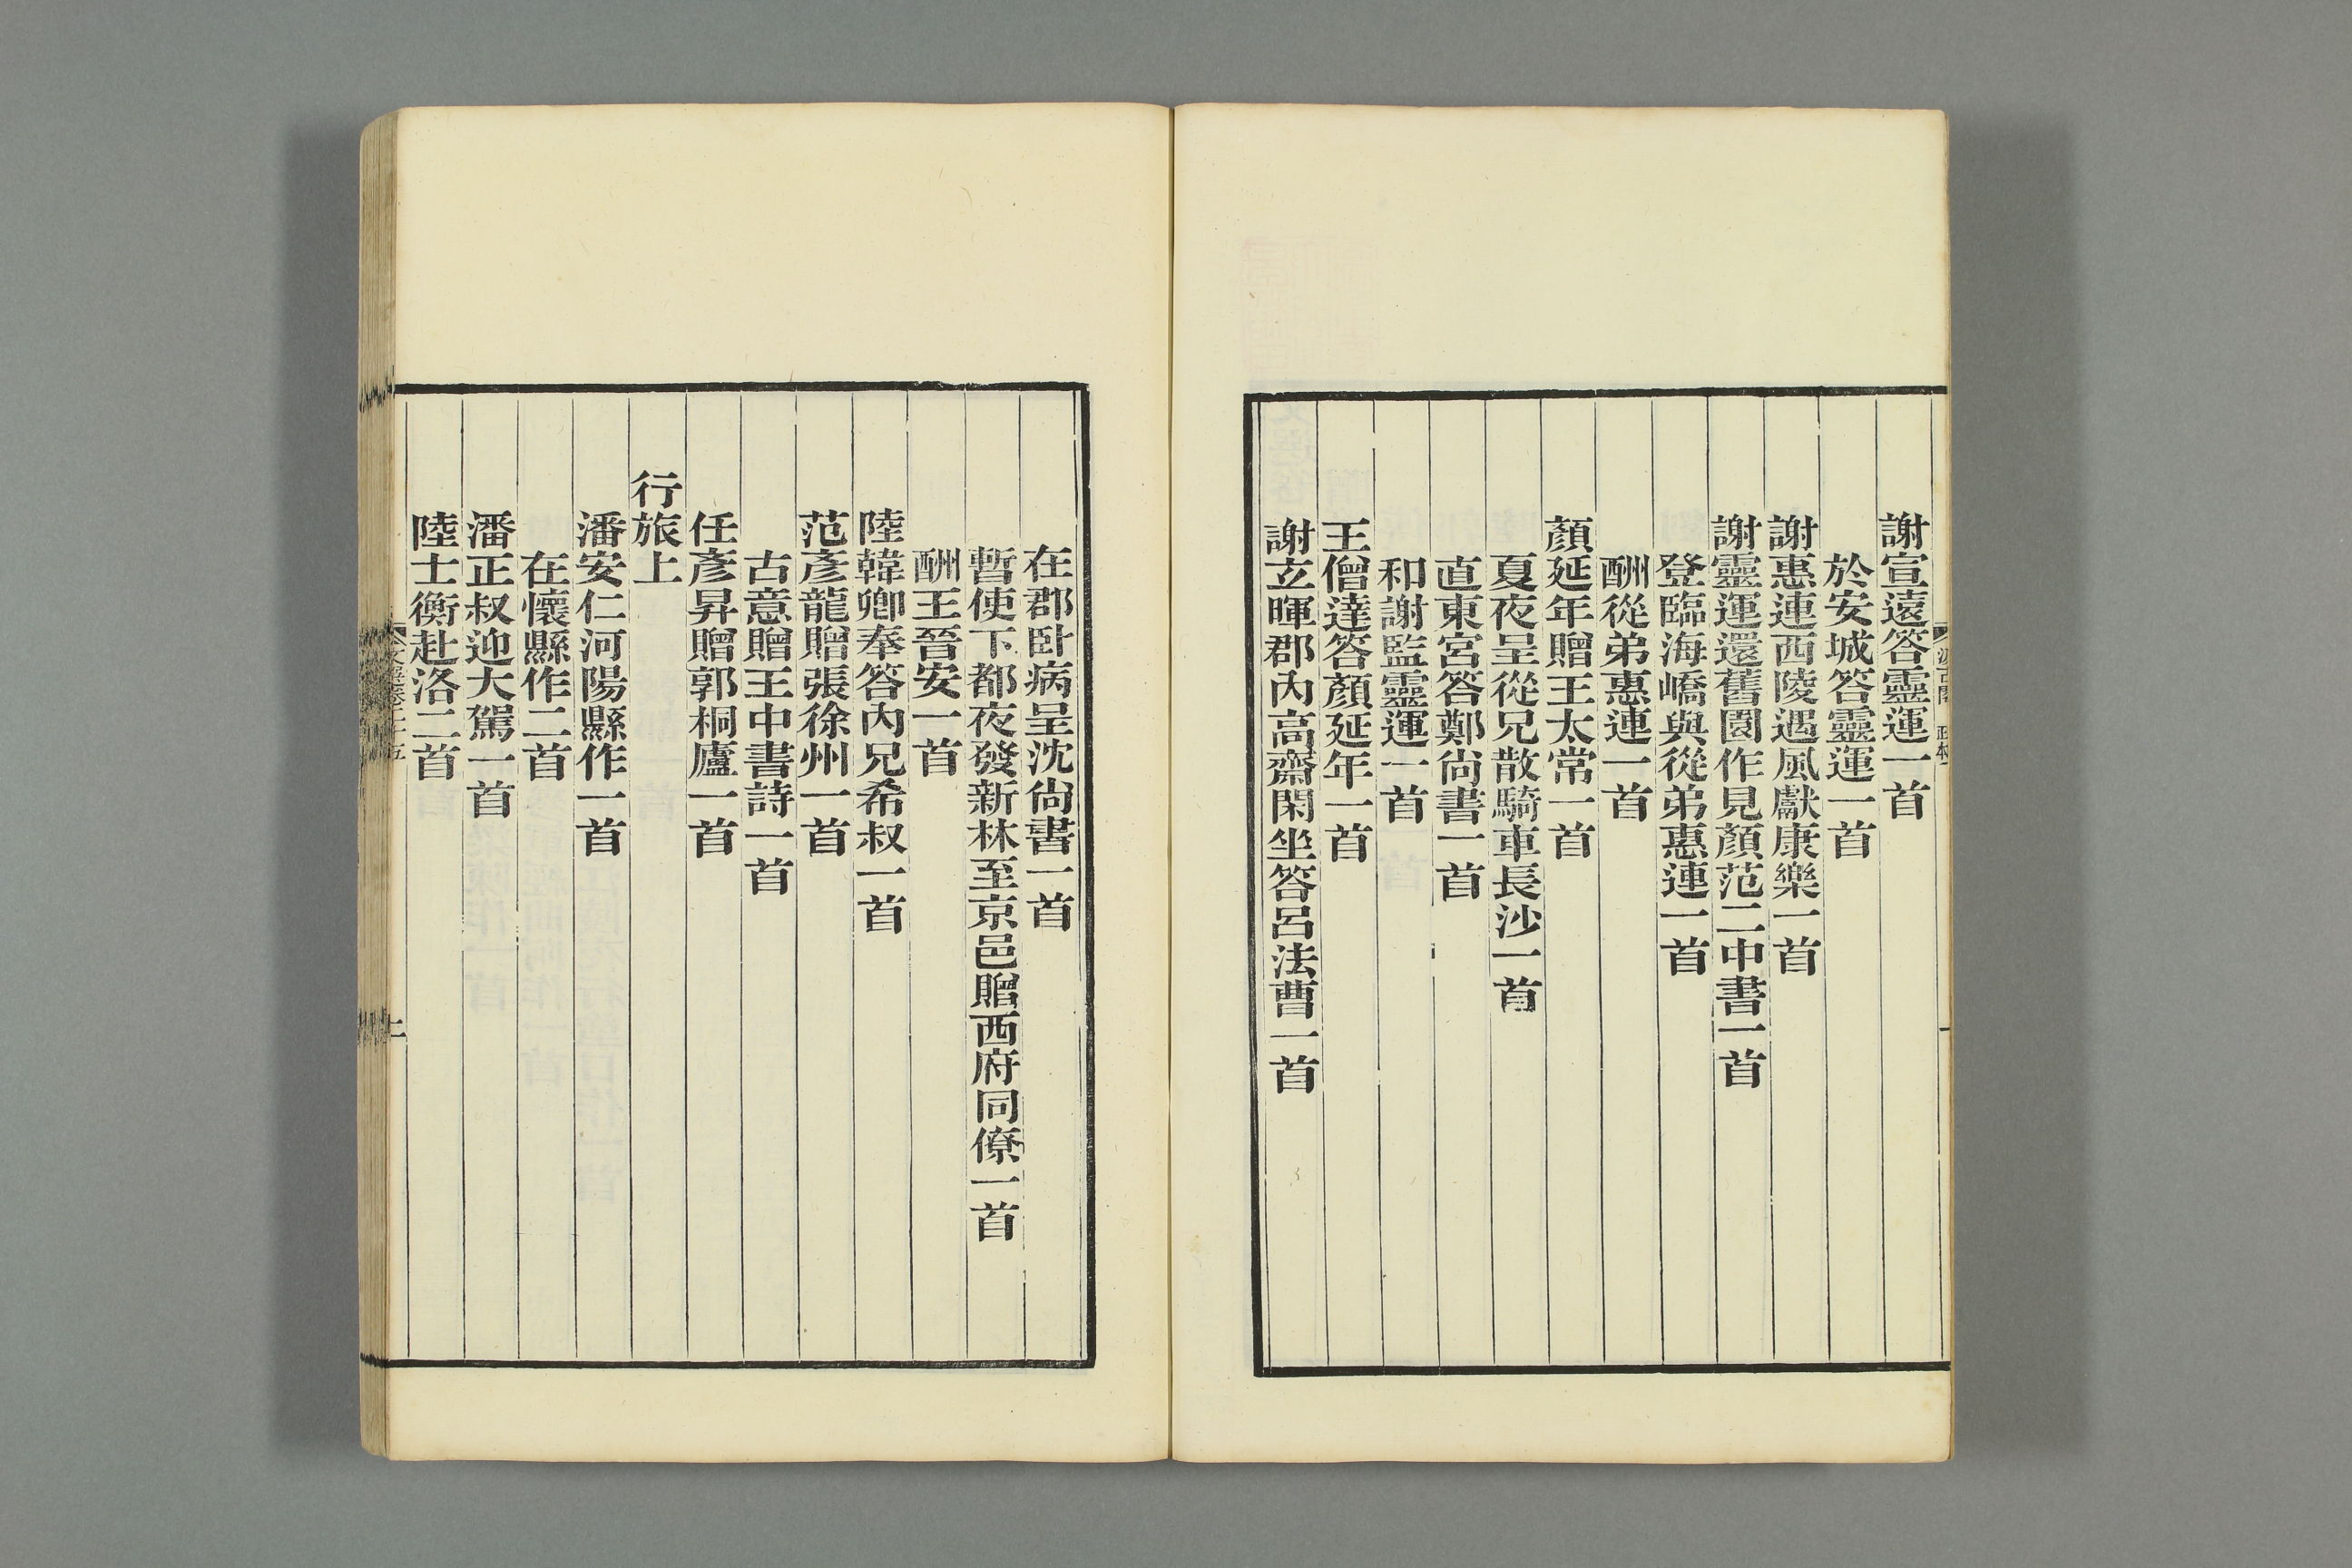 謝宣遠答靈運一首
於安城答靈運一首
謝惠連西陵遇風獻康樂一首
謝靈運還舊園作見顏范二中書一首
登臨海嶠與從弟惠連一首
酬從弟惠連一首
顏延年贈王太常一首
夏夜呈從兄散騎車長沙一首
直東宮答鄭尚書一首
和謝監靈運一首
王僧達答顏延年一首
謝立暉郡內高齋閑坐答呂法曹一首
在郡卧病呈沈尚書一首
暫使下都夜發新林至京邑贈西府同僚一首
酬王晉安一首
陸韓卿奉答內兄希叔一首
范彥龍贈張徐州一首
古意贈王中書詩一首
任彥昇贈郭桐廬一首
行旅上
潘安仁河陽縣作一首
在懷縣作二首
潘正叔迎大駕一首
陸士衡赴洛二首